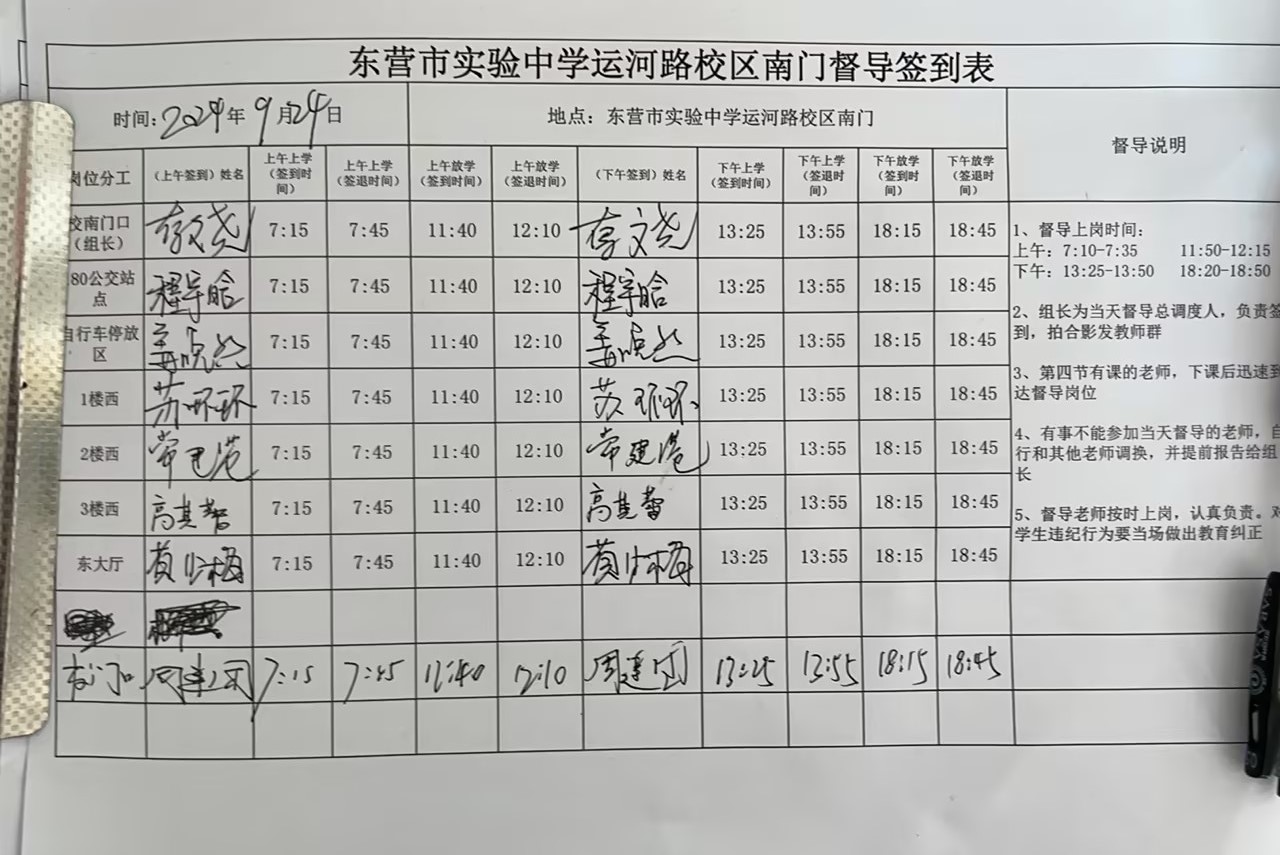 东营市实验中学运河路校区南门督导签到表
时间：2024年9月24日 地点：东营市实验中学运河路校区南门 督导说明
岗位分工 （上午签到）姓名 上午上学（签到时间） 上午上学（签退时间） 上午放学（签到时间） 上午放学（签退时间） （下午签到）姓名 下午上学（签到时间） 下午上学（签退时间） 下午放学（签到时间） 下午放学（签退时间）
校南门口（组长） 7:15 7:45 11:40 12:10 13:25 13:55 18:15 18:45
80公交站点 程宇晗 7:15 7:45 11:40 12:10 程宇晗 13:25 13:55 18:15 18:45
自行车停放区 7:15 7:45 11:40 12:10 13:25 13:55 18:15 18:45
1楼西 苏环环 7:15 7:45 11:40 12:10 苏环环 13:25 13:55 18:15 18:45
2楼西 常建港 7:15 7:45 11:40 12:10 常建港 13:25 13:55 18:15 18:45
3楼西 7:15 7:45 11:40 12:10 13:25 13:55 18:15 18:45
东大厅 7:15 7:45 11:40 12:10 13:25 13:55 18:15 18:45
7:15 7:45 11:40 12:10 13:25 13:55 18:15 18:45
1、督导上岗时间：
上午：7:10-7:35 11:50-12:15
下午：13:25-13:50 18:20-18:50
2、组长为当天督导总调度人，负责签
到，拍合影发教师群
3、第四节有课的老师，下课后迅速到
达督导岗位
4、有事不能参加当天督导的老师，自
行和其他老师调换，并提前报告给组
长
5、督导老师按时上岗，认真负责。对
学生违纪行为要当场做出教育纠正